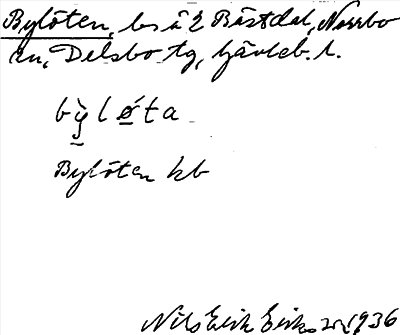 Bylöten, ls å 2 Båstdal, Norrbo
sn, Delsbo tg, Gävleb. l.
bỳ̱lǿ̱ta
Bylöten kb
Nils Erik Eriksson 1936